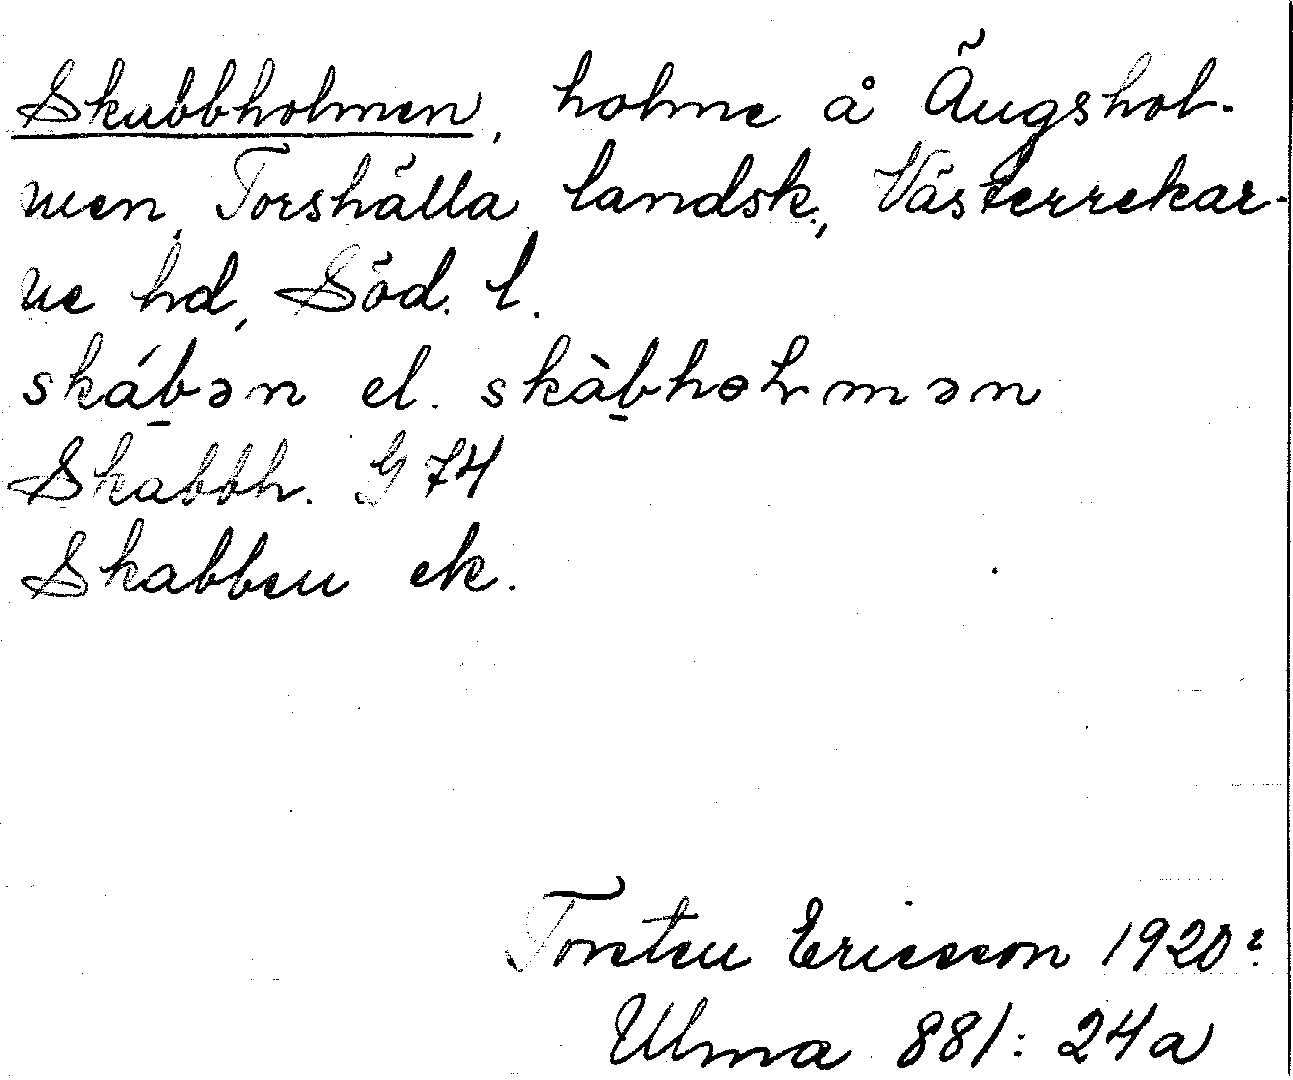 Skabbholmen, holme å Ängshol-
men, Torshälla landsk., Västerrekar-
ne hd, Söd. l.
skáb̠ən el. skàb̠hɵLmən
Skabbh. G 74
Skabben ek.
Torsten Ericsson 1920?
Ulma 881: 24a